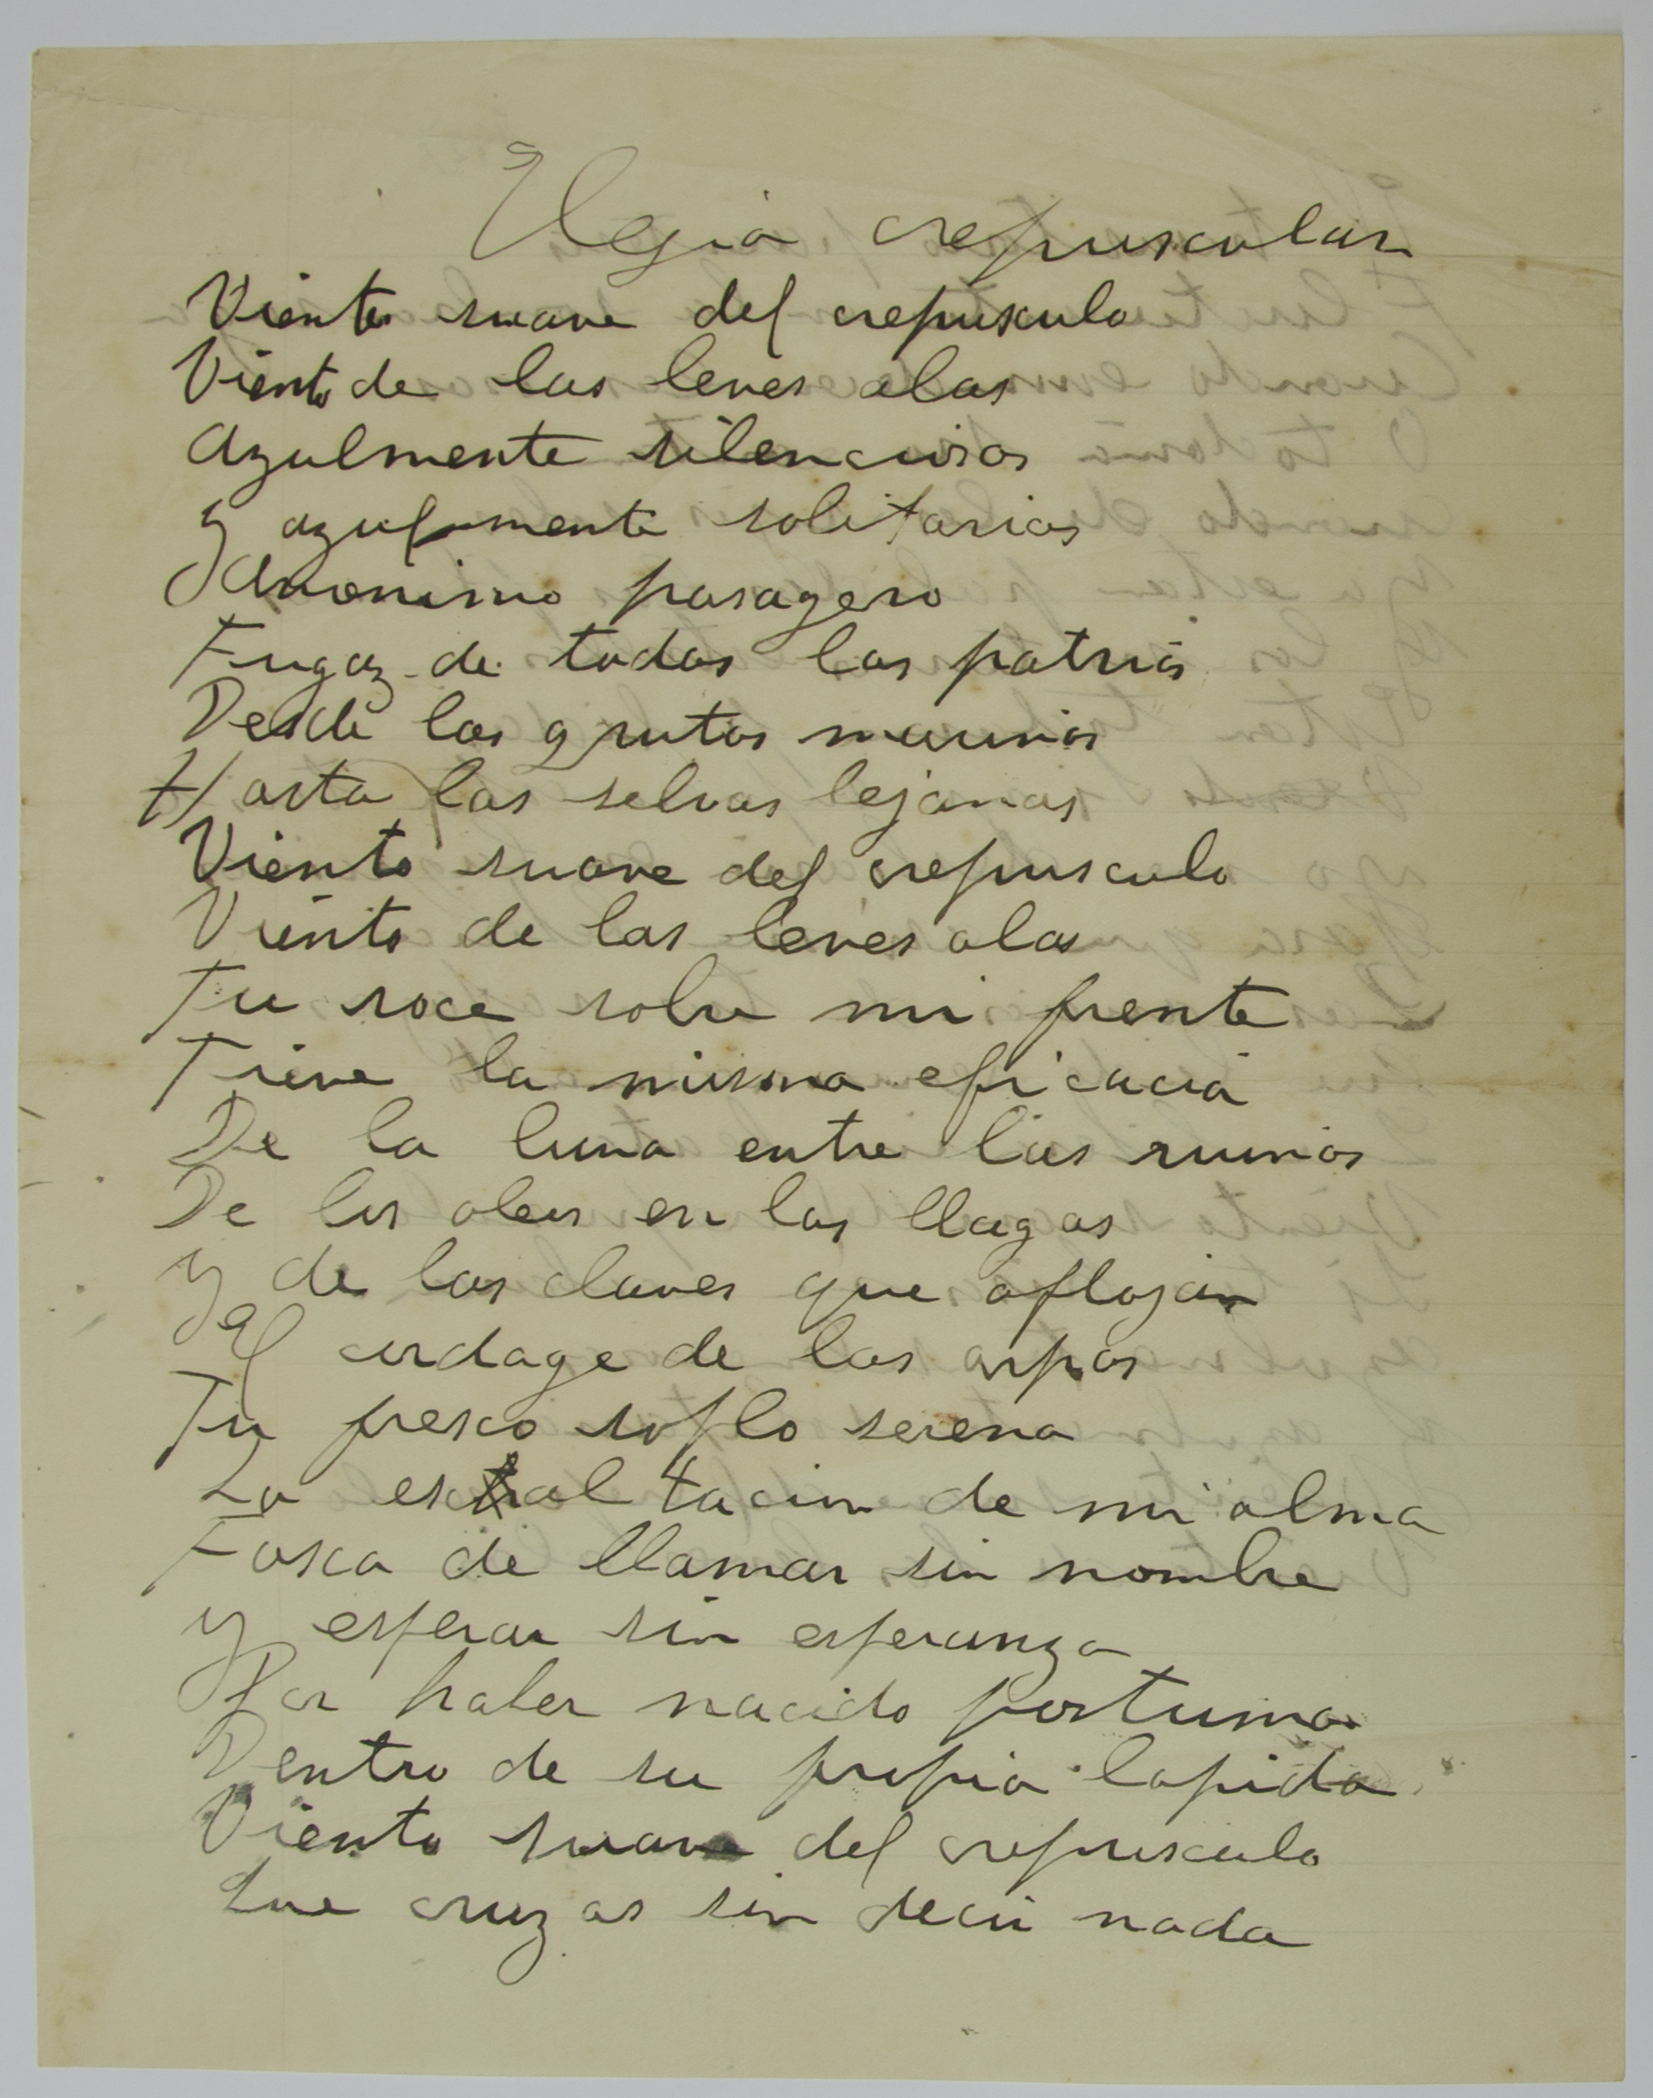 Elegia crepuscular
Viento suave del crepusculo
Viento de las leves alas
Azulmente silenciosas
y azulmente solitarias
Anonimo pasagero
Fugaz de todas las patrias
Desde las grutas marinas
Hasta las selvas lejanas
Viento suave del crepusculo
Viento de las leves alas
Tu roce sobre mi frente
Tiene la misma eficacia
De la luna entre las ruinas
De los oleos en las llagas
y de las claves que aflojan
el cordage de las arpas
Tu fresco soflo serena
La exaltacion de mi alma
Fosca de llamar sin nombre
y esperar sin esperanza
Por haber nacido postuma
Dentro de su propia lapida
Viento suave del crepusculo
Que cruzas sin decir nada